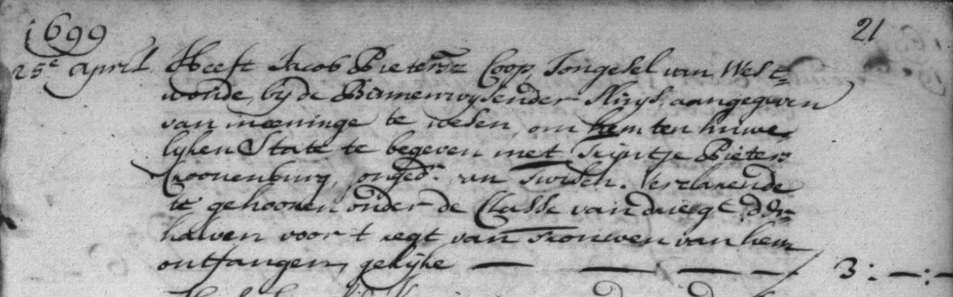 1699
21
25e April Heeft Jacob Pietersz Coop, Jongesel van West-
woude, bij de
van meeninge te wesen om hem ten huwe-
lijken State te begeven met Trijntje Pieters
Croonenburg, jonged.r van Twisch. Verclarende
te gehooren onder de Classe van drie gt: d'Er-
halven voor 't regt van trouwen van hem
ontfangen gelijke — — — — 3:—:—